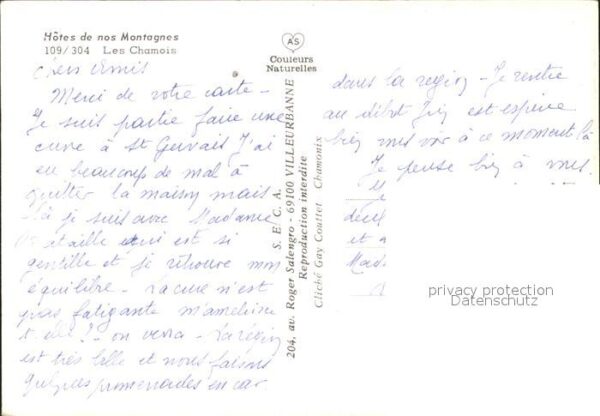 Hôtes de nos Montagnes
109/304 Les Chamois
Chers Amis
Merci de votre carte -
Je suis partie faire une
cure à St Gervais J'ai
eu beaucoup de mal à
quitter la maison mais
là je suis avec Madame
qui est si
gentille et je retrouve mon
équilibre - La cure n'est
pas fatigante m'améliore
t-elle? - on verra - La région
est très belle et nous faisons
quelques promenades en car
AS
Couleurs
Naturelles
S. E. C. A.
204, av. Roger Salengro - 69100 VILLEURBANNE
Reproduction interdite
Cliché Gay Couttet Chamonix
dans la région - Je rentre
au début Juin et espère
bien vous voir à ce moment là
Je pense bien à vous
et a
Mad
privacy protection
Datenschutz